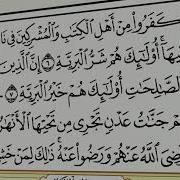 كَفَرُوا۟ مِنْ أَهْلِ ٱلْكِتَـٰبِ وَٱلْمُشْرِكِينَ فِى نَا
يهَآ ۚ أُو۟لَـٰٓئِكَ هُمْ شَرُّ ٱلْبَرِيَّةِ ٦ إِنَّ ٱلَّذِينَ
ٱلصَّـٰلِحَـٰتِ أُو۟لَـٰٓئِكَ هُمْ خَيْرُ ٱلْبَرِيَّةِ ٧
هِمْ جَنَّـٰتُ عَدْنٍ تَجْرِى مِن تَحْتِهَا ٱلْأَنْهَـٰرُ
ضِىَ ٱللَّهُ عَنْهُمْ وَرَضُوا۟ عَنْهُ ۚ ذَٰلِكَ لِمَنْ خَشِ